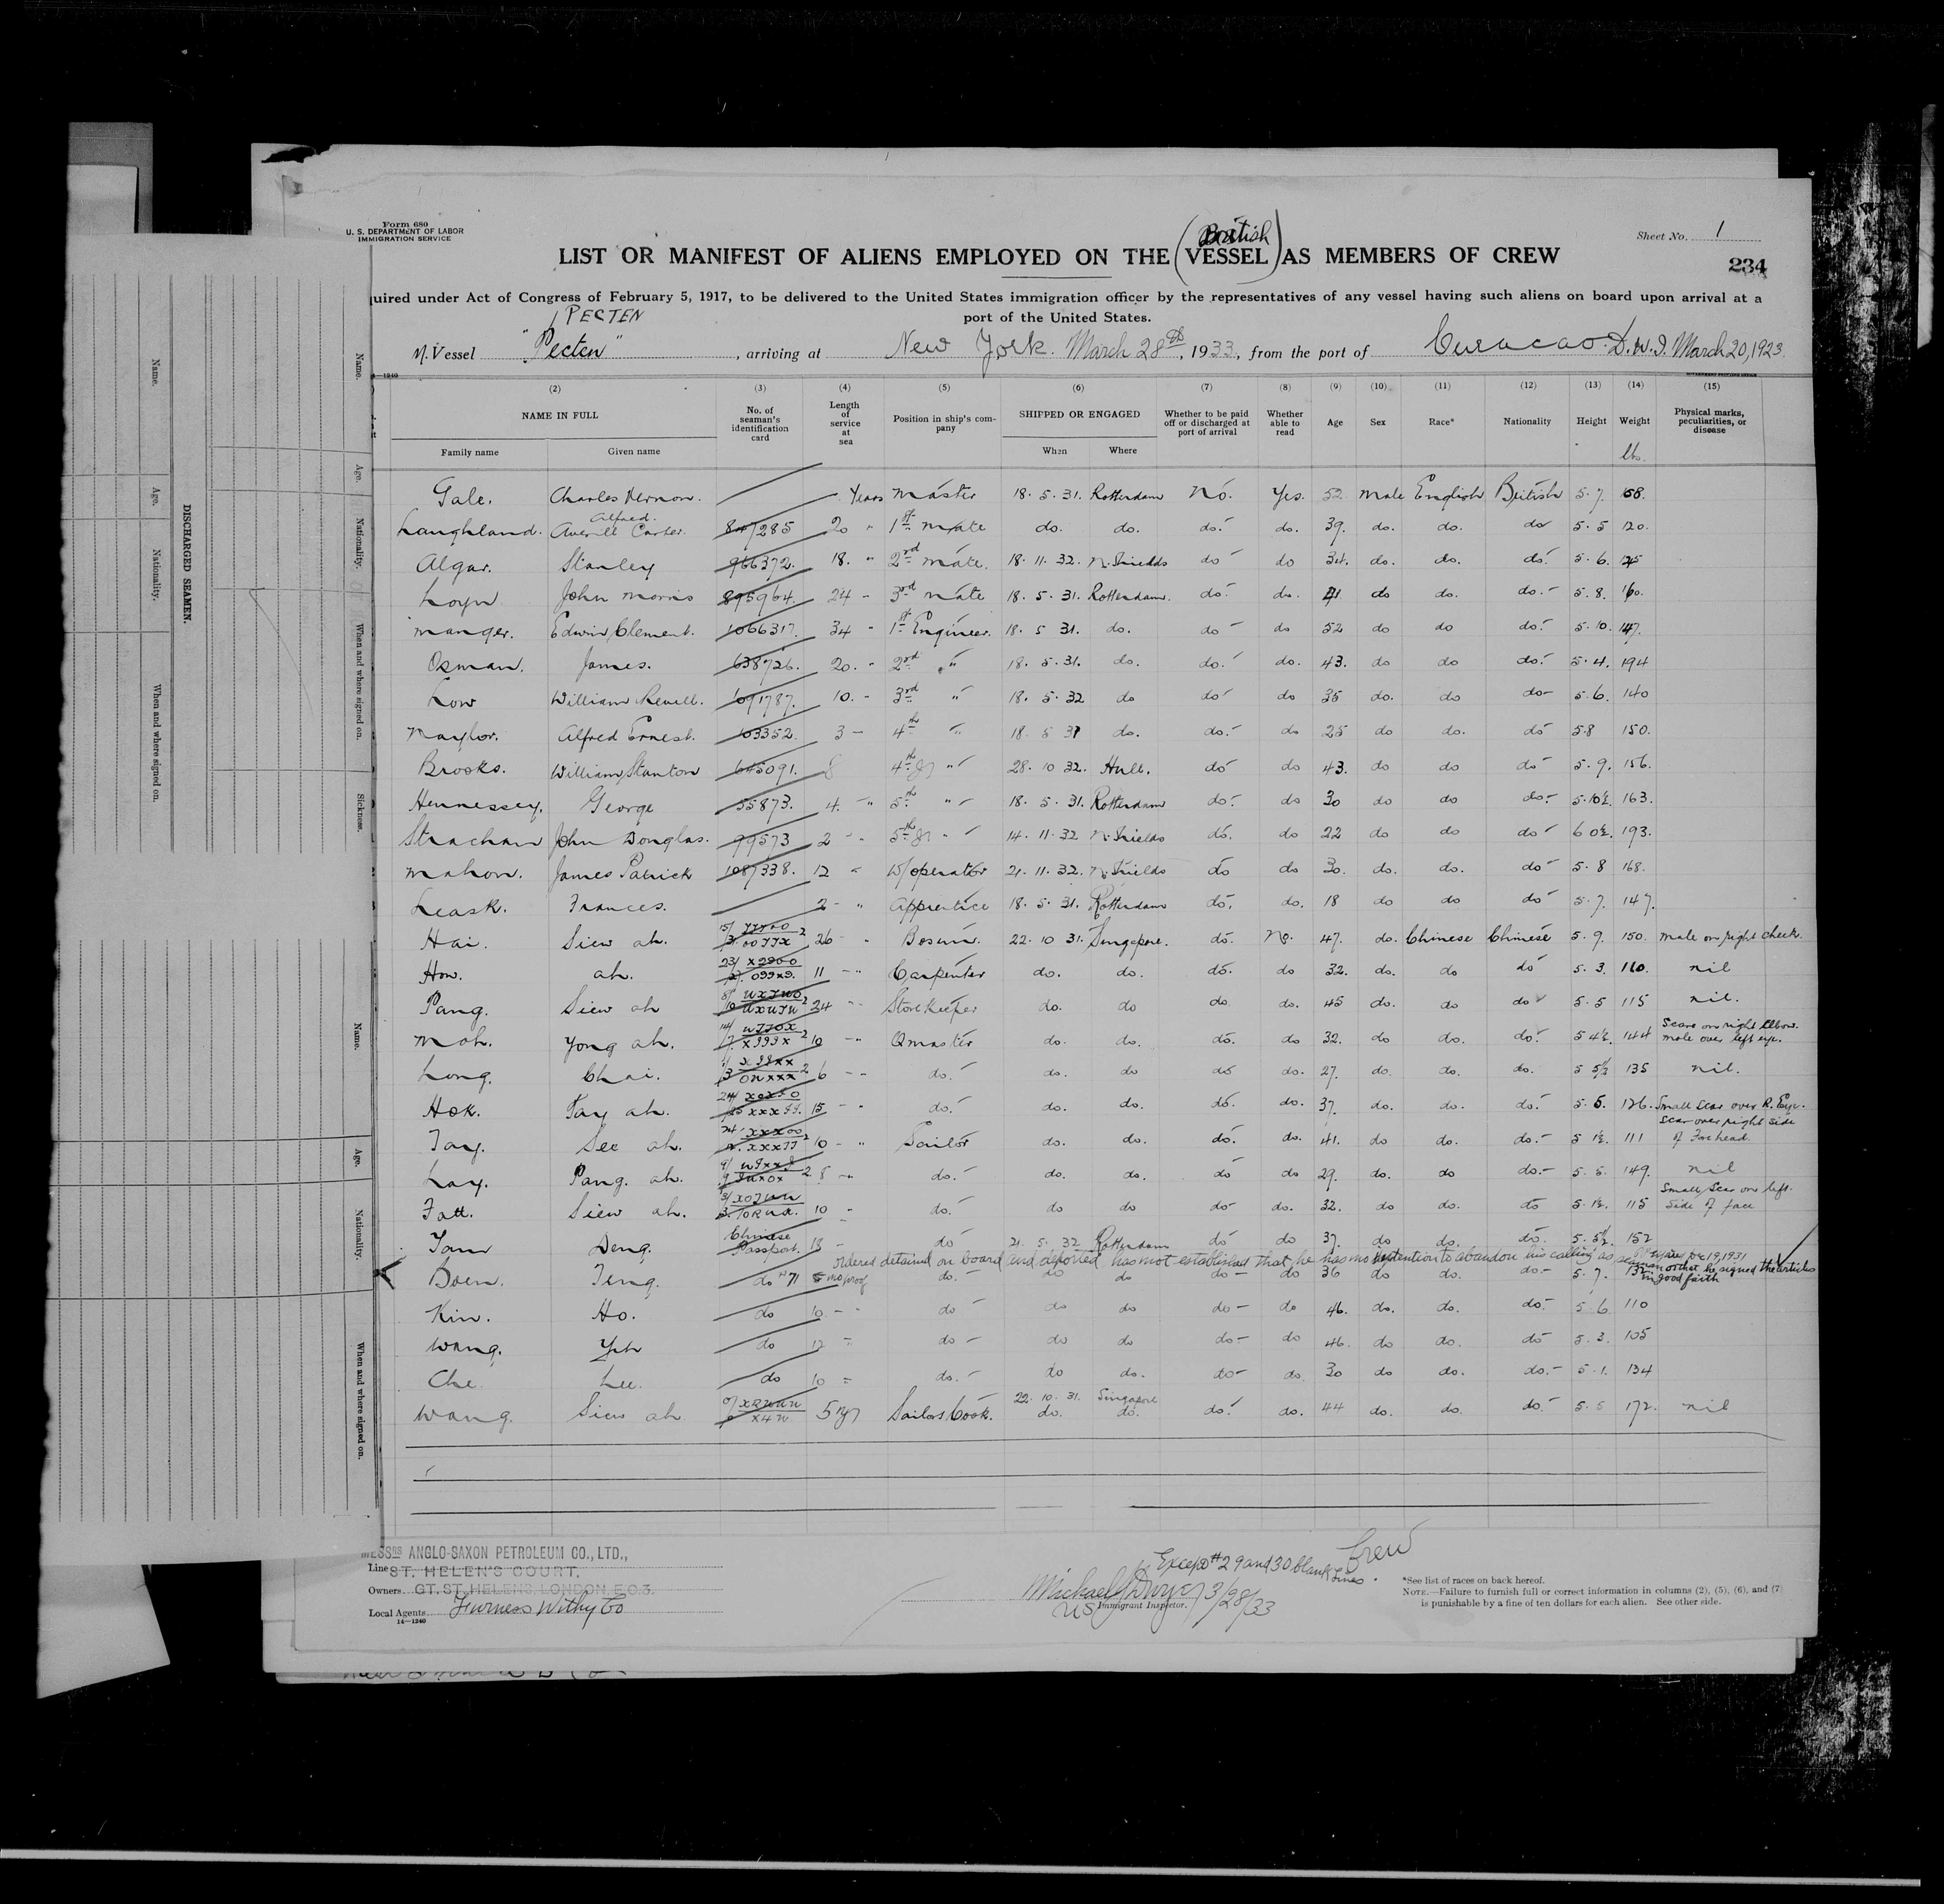 Form 680
U. S. DEPARTMENT OF LABOR
IMMIGRATION SERVICE
Sheet No. 1
British
LIST OR MANIFEST OF ALIENS EMPLOYED ON THE (VESSEL) AS MEMBERS OF CREW
234
uired under Act of Congress of February 5, 1917, to be delivered to the United States immigration officer by the representatives of any vessel having such aliens on board upon arrival at a
port of the United States.
PECTEN
M. Vessel "Pecten", arriving at New York. March 28th, 1933, from the port of Curacao. D.W.I. March 20, 1923
(2) (3) (4) (5) (6) (7) (8) (9) (10) (11) (12) (13) (14) (15)
NAME IN FULL
Family name Given name
No. of seaman's identification card
Length of service at sea
Position in ship's company
SHIPPED OR ENGAGED
When Where
Whether to be paid off or discharged at port of arrival
Whether able to read
Age
Sex
Race*
Nationality
Height
Weight
lbs.
Physical marks, peculiarities, or disease
Gale. Charles Vernon. Years Master 18. 5. 31. Rotterdam No. Yes. 52 Male English British 5. 7. 158.
Alfred.
Laughland. Averill Carter. 847285 20 " 1st Mate do. do. do. do. 39. do. do. do 5. 5 120.
Algar. Stanley 966372. 18. " 2nd Mate. 18. 11. 32. N. Shields do do 34. do. do. do. 5. 6.
Loyn John Morris 895964. 24 - 3rd Mate 18. 5. 31. Rotterdam. do. do. 41 do do. do. 5. 8. 160.
Manger. Edwin Clement. 1066317. 34 " 1st Engineer. 18. 5 31. do. do do 52 do do do. 5. 10. 147.
Osman. James. 638726. 20. " 2nd " 18. 5. 31. do. do. do. 43. do do do. 5. 4. 194
Low William Revell. 1091787. 10. - 3rd " 18. 5. 32 do do do 35 do. do do 5. 6. 140
Naylor. Alfred Ernest. 103352. 3 - 4th " 18. 5 31 do. do. do 25 do do. do 5.8 150.
Brooks. William Stanton 645091. 8 4th Jr " 28. 10 32. Hull. do do 43. do do do 5. 9. 156.
Hennessey. George 55873. 4. " 5th " 18. 5. 31. Rotterdam do. do 30 do do do. 5.10½. 163.
Strachan John Douglas. 99573 2 - 5th Jr " 14. 11. 32 N. Shields do. do 22 do do do 6 0½. 193.
Mahon. James Patrick 1087338. 12 " W/operator 21. 11. 32. N. Shields do do 30. do. do. do 5. 8 168.
Leask. Frances. 2 - " Apprentice 18. 5. 31. Rotterdam do. do. 18 do do do 5. 7. 147.
Hai. Siew ah. 26 " Bosun. 22. 10 31. Singapore. do. No. 47. do. Chinese Chinese 5. 9. 150. Mole on right cheek.
How. ah. 11 - " Carpenter do. do. do. do 32. do. do do 5. 3. 110. nil
Pang. Siew ah 24 - Storekeeper do. do do do. 45 do. do do 5. 5 115 nil.
Moh. Yong ah. 10 - " Qmaster do. do. do. do 32. do do do. 5 4½. 144 Scare on right Elbow. mole over left eye.
Long. Chai. 6 - - do. do. do do do. 27. do. do. do. 5 5½ 135 nil.
Hok. Tay ah. 15 - do. do. do. do. do. 37. do. do. do. 5. 5. 126. Small Scar over R. Eye.
Tay. See ah. 10 - " Sailor do. do. do. do. 41. do do. do. 5 1½. 111 Scar over right side of Forehead.
Lay. Pang. ah. 8 - do. do. do. do do 29. do. do do. 5. 5. 149. nil
Fatt. Siew ah. 10 - do. do do do do. 32. do do. do 5. 1½. 115 Small Scar on left. Side of face
Tam Deng. Chinese Passport. 13 - do 21. 5. 32 Rotterdam do do 37. do do. do. 5. 5½. 152
ordered detained on board and deported has not established that he has no intention to abandon his calling as seaman or that he signed the articles in good faith
Boen. Teng. do "71 5 no proof do. do do do do 36 do do. do 5. 7. 132
Kin. Ho. do 10 - do do do do do 46. do. do. do. 5 6. 110
Wang. Yeh do 12 - do do do do do 46. do do. do 5. 3. 105
Che. Lee. do 10 - do. do do. do do. 30 do do. do. 5. 1. 134
22. 10. 31. Singapore
Wang. Siew ah. 5 Sailors Cook. do. do. do. do. 44 do. do. do. 5. 5 172. nil
MESSRS ANGLO-SAXON PETROLEUM CO., LTD.,
Line ST. HELEN'S COURT.
Owners GT. ST. HELENS. LONDON, E.C.3.
Local Agents Furness Withy Co
14—1240
Except #29 and 30 blank lines. Crew
3/28/33
US Immigrant Inspector.
*See list of races on back hereof.
NOTE.—Failure to furnish full or correct information in columns (2), (5), (6), and (7)
is punishable by a fine of ten dollars for each alien. See other side.
DISCHARGED SEAMEN.
Name. Age. Nationality. When and where signed on.
Name. Age. Nationality. When and where signed on. Sickness.
Name. Age. Nationality. When and where signed on.